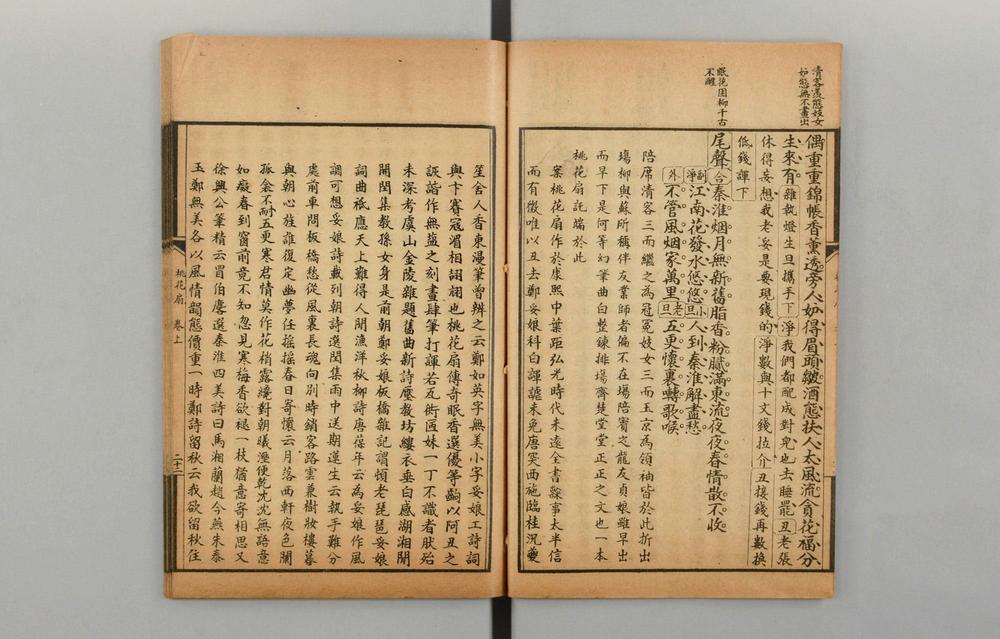 清客羨態妓女
如態無不畫出
眠花困柳千古
不醒
偶重重錦帳香薰透旁人妬得眉頭皺酒態扶人太風流貪花福分
生來有雜執燈生旦攜手下淨我們都配成對兒也去睡罷丑老張
休得妄想我老妥是要現錢的淨數與十文錢拉介丑接錢再數換
低錢諢下
尾聲合秦淮烟月無新舊脂香粉膩滿東流夜夜春情散不收
副淨江南花發水悠悠小旦人到秦淮解盡愁
外不管風烟家萬里老旦五更懷裏囀歌喉
陪席清客三而繼之為冠冕妓女三而玉京為領袖皆於此折出
場柳與蘇所稱伴友業師者偏不在場陪賓之龍友貞娘雖早出
而早下是何等幻筆曲白整鍊排場齊楚堂堂正正之文也一本
桃花扇託端於此
案桃花扇作於康熙中葉距弘光時代未遠全書敷事太半信
而有徵唯以丑去鄭妥娘科白諢謔未免唐突西施臨桂況夔
笙舍人香東漫筆曾辨之云鄭如英字無美小字妥娘工詩詞
與卞賽寇湄相詡翃也桃花扇傳奇眼香選優等齣以阿丑之
詼諧作無鹽之刻畫肆筆打諢若瓦衖匼妹一丁不識者肰殆
未深考虞山金陵雜題舊曲新詩壓教坊縷衣垂白感湖湘閒
開閏集教孫女身是前朝鄭妥娘板橋雜記謂頓老琵琶妥娘
詞曲祇應天上難得人間漁洋秋柳詩唐葆年云為妥娘作風
調可想妥娘詩載列朝詩選閏集雨中送期蓮生云執手難分
處前車問板橋愁從風裏長魂向別時銷客路雲兼樹妝樓暮
與朝心旌誰復定幽夢任搖搖春日寄懷云月落西軒夜色闌
孤衾不耐五更寒君情莫作花稍露纔對朝曦溼便乾沈沈無語意
如癡春到窗前竟不知忽見寒梅香欲褪一枝猶意寄相思又
徐興公筆精云冒伯麐選秦淮四美詩曰馬湘蘭趙今燕朱泰
玉鄭無美各以風情韻態價重一時鄭詩留秋云我欲留秋住
桃花扇 卷上 二十二